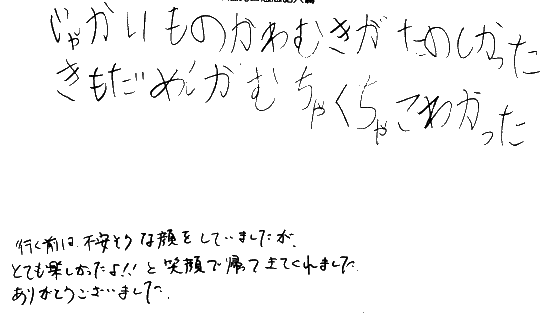 じゃかいものかわむきがたのしかった
きもだめしかむちゃくちゃこわかった
行く前は、不安そうな顔をしていましたが、
とても楽しかったよ!!と笑顔で帰ってきてくれました。
ありがとうございました。